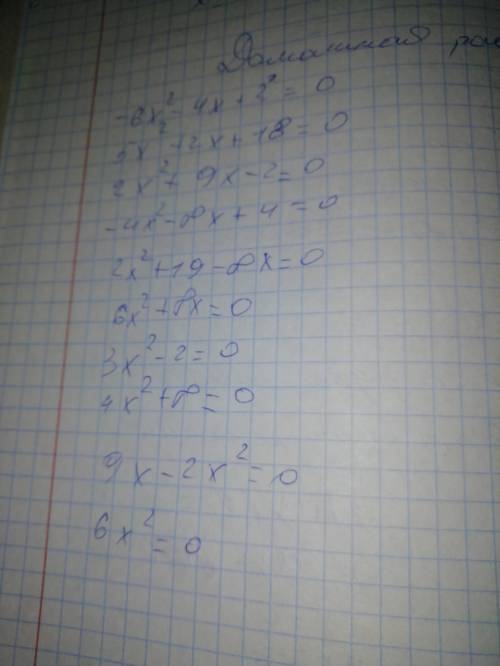 Домашная
-6x² - 4x + 2 = 0
5x² - 2x + 18 = 0
2x² + 9x - 2 = 0
-4x² - 8x + 4 = 0
2x² + 19 - 8x = 0
6x² + 8x = 0
3x² - 2 = 0
4x² + 8 = 0
9x - 2x² = 0
6x² = 0